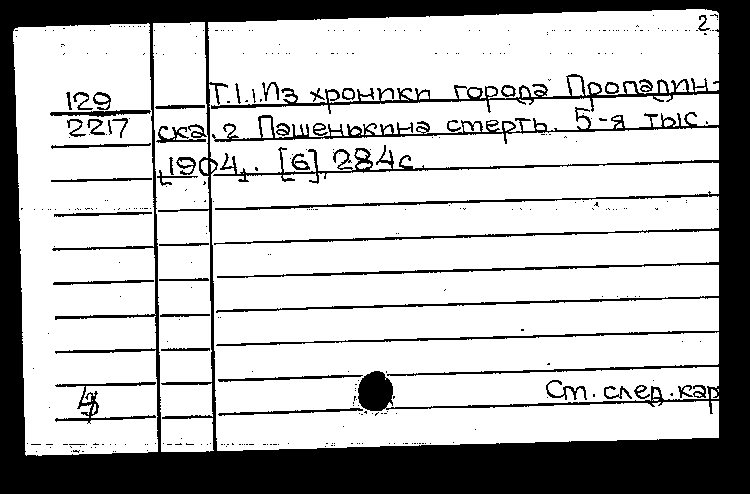 2
129 Т.1.Из хроники города Пропадин-
2217 ска. 2 Пашенькина смерть. 5-я тыс.
[1904]. [6], 284с.
См. след. кар